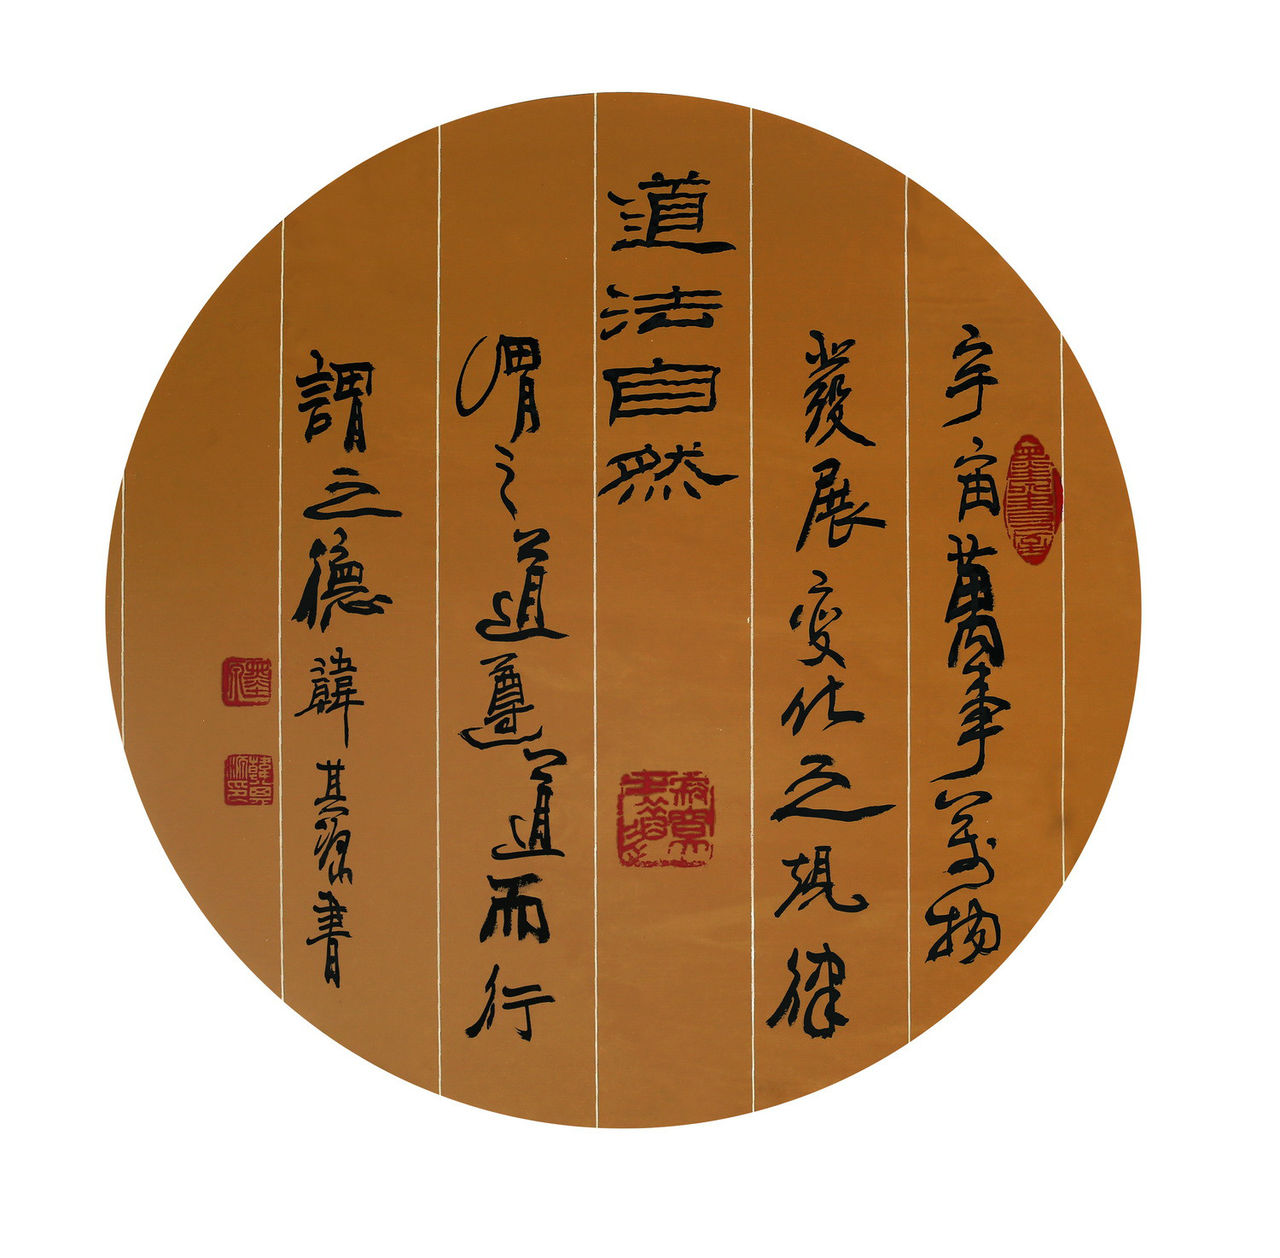 宇宙萬事萬物
發展变化之規律
道法自然
謂之道遵道而行
謂之德韓其源書